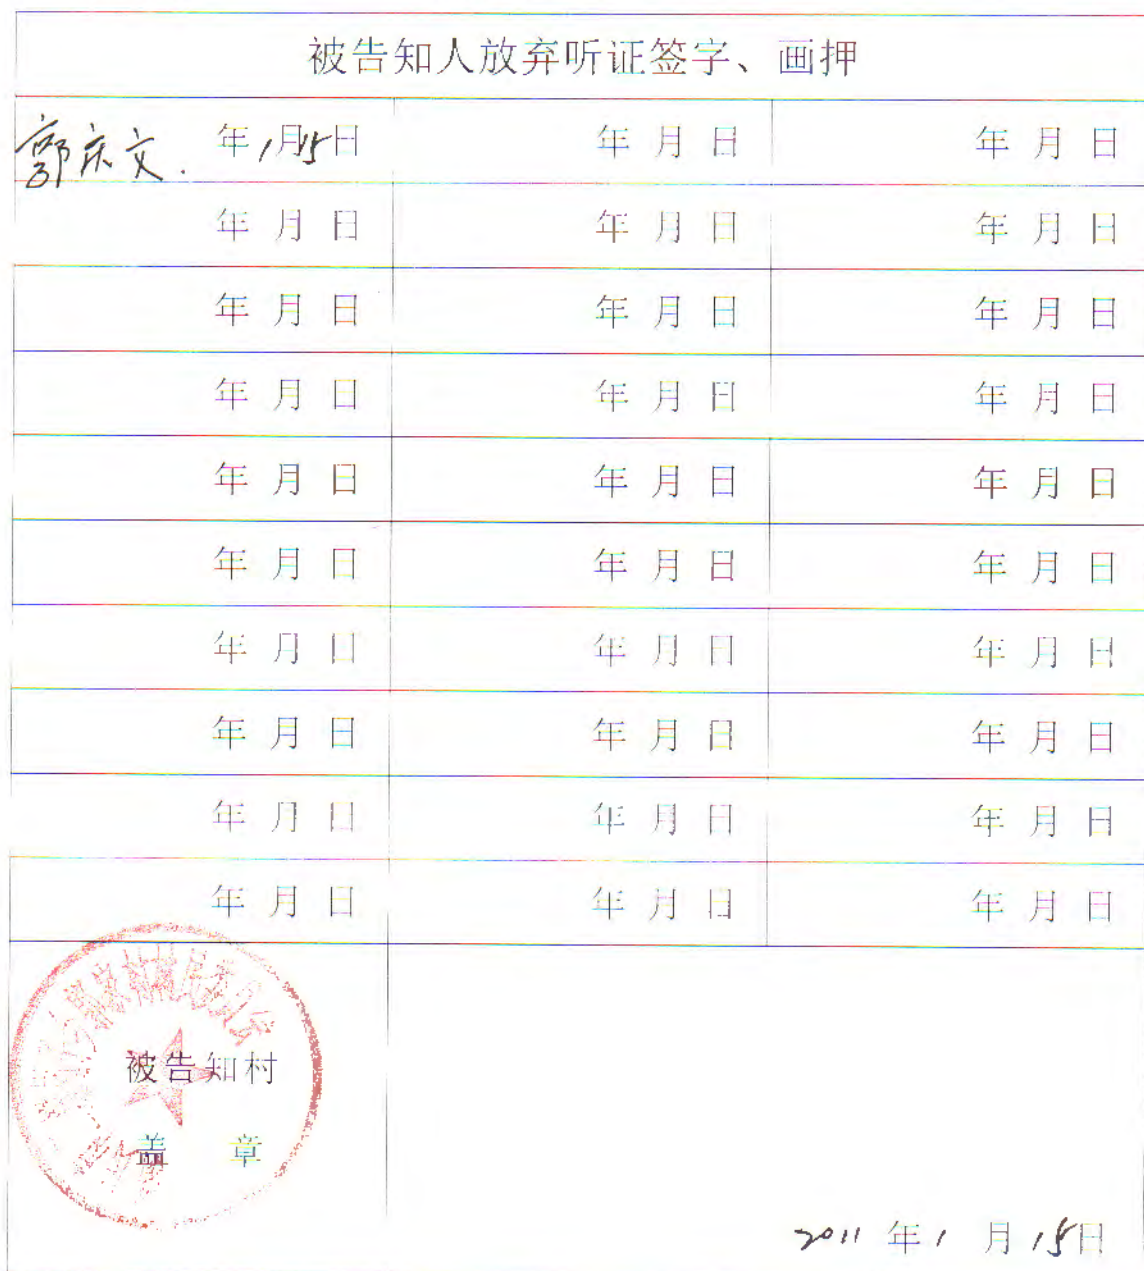 被告知人放弃听证签字、画押
郭庆文. 年1月15日 年 月 日 年 月 日
年 月 日 年 月 日 年 月 日
年 月 日 年 月 日 年 月 日
年 月 日 年 月 日 年 月 日
年 月 日 年 月 日 年 月 日
年 月 日 年 月 日 年 月 日
年 月 日 年 月 日 年 月 日
年 月 日 年 月 日 年 月 日
年 月 日 年 月 日 年 月 日
年 月 日 年 月 日 年 月 日
被告知村
盖 章
2011 年 1 月 15日